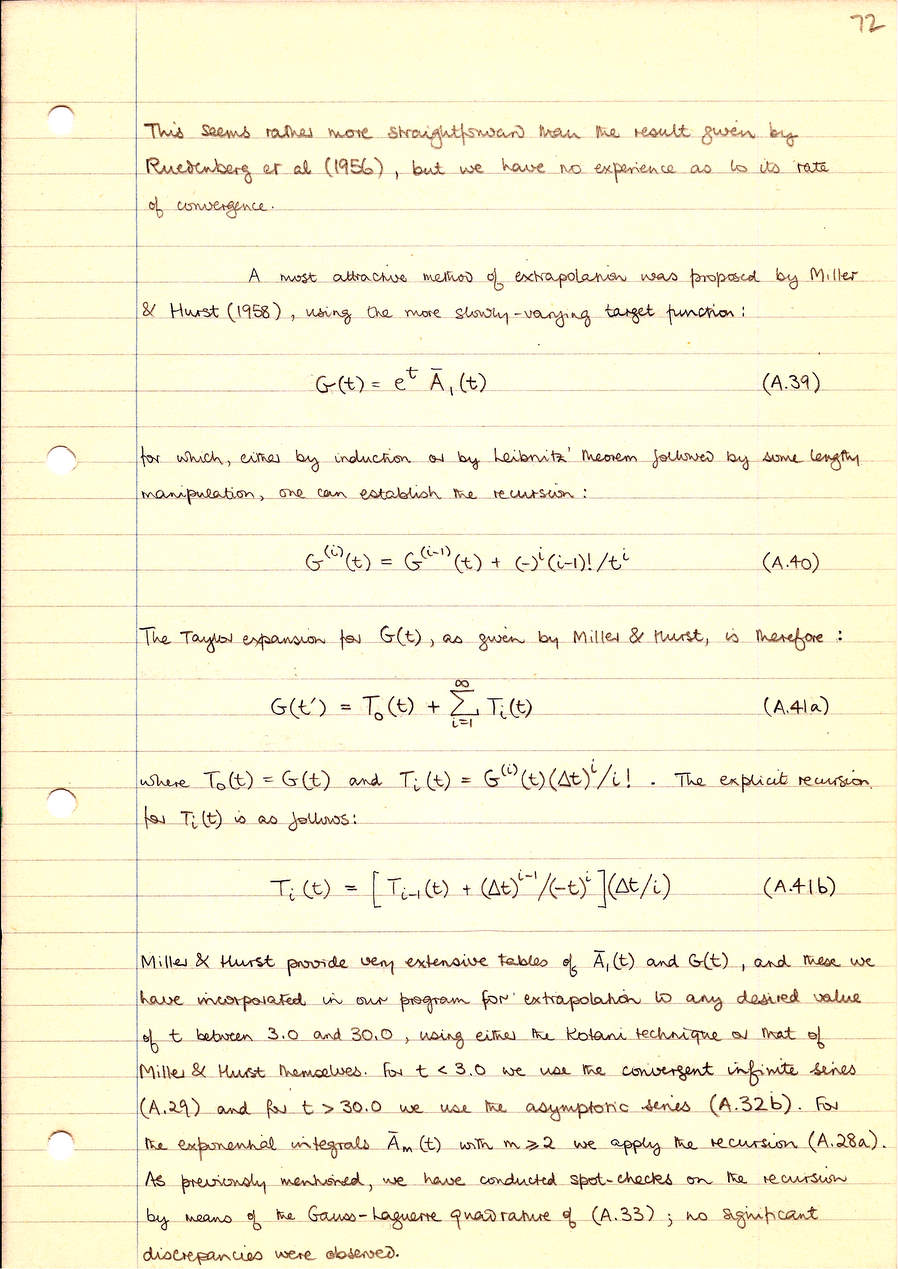 72
This seems rather more straightforward than the result given by
Ruedenberg et al (1956), but we have no experience as to its rate
of convergence.
A most attractive method of extrapolation was proposed by Miller
& Hurst (1958), using the more slowly-varying target function:
G(t) = e^t Ā₁(t) (A.39)
for which, either by induction or by Leibnitz' theorem followed by some lengthy
manipulation, one can establish the recursion:
G^(i)(t) = G^(i-1)(t) + (-)^i (i-1)!/t^i (A.40)
The Taylor expansion for G(t), as given by Miller & Hurst, is therefore:
G(t′) = T₀(t) + ∑_{i=1}^∞ T_i(t) (A.41a)
where T₀(t) = G(t) and T_i(t) = G^(i)(t)(Δt)^i/i! . The explicit recursion
for T_i(t) is as follows:
T_i(t) = [T_{i-1}(t) + (Δt)^{i-1}/(-t)^i](Δt/i) (A.41b)
Miller & Hurst provide very extensive tables of Ā₁(t) and G(t), and these we
have incorporated in our program for extrapolation to any desired value
of t between 3.0 and 30.0, using either the Kotani technique or that of
Miller & Hurst themselves. For t < 3.0 we use the convergent infinite series
(A.29) and for t > 30.0 we use the asymptotic series (A.32b). For
the exponential integrals Ā_m(t) with m ≥ 2 we apply the recursion (A.28a).
As previously mentioned, we have conducted spot-checks on the recursion
by means of the Gauss-Laguerre quadrature of (A.33); no significant
discrepancies were observed.